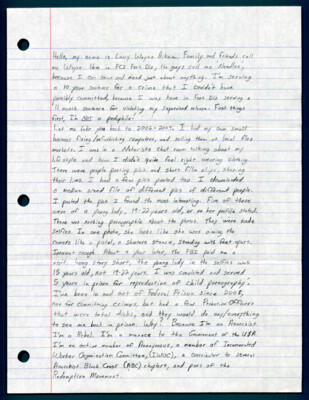 Hello, my name is Larry Wayne Family and friends call
me Wayne. Here in FCI Fort Dix, the guys call me Needles,
because I can sew and mend just about anything. I'm serving
a 10 year sentence for a crime that I couldn't have
possibly committed, because I was here in Fort Dix serving a
11 month sentence for violating my supervised release. First things
first, I'm NOT a pedophile!
Let me take you back to 2006-2007. I had my own small
business fixing/refurbishing computers, and selling them at local flea
markets. I was in a chat room talking about my
style and how I didn't quite feel right wearing clothing.
There were people posting pics and short film clips, sharing
their link. I had a few pics posted too. I downloaded
a medium sized file of different pics of different people.
I posted the pics I found the most interesting. Five of these
were of a young lady, 19-22 years old, or so her profile stated.
There was nothing pornographic about the photos. They were nude
selfies. In one photo, she looks like she was aiming the
camera like a pistol, a shooters stance, standing with feet apart.
Innocent enough. About a year later, the FBI paid me a
visit. Long story short, the young lady in the selfies was
15 years old, not 19-22 years. I was convicted and served
5 years in prison for reproduction of child pornography.
I've been in and out of Federal Prison since 2008,
not for committing crimes, but had a few Probation Officers
that were total dicks, and they would do any/everything
to see me back in prison. Why? Because I'm an Anarchist
I'm a Rebel. I'm a menace to the Government of the USA.
I'm an active member of Anonymous, a member of Incarcerated
Workers Organization Committee, (IWOC), a contributor to several
Anarchist Black Cross (ABC) chapters, and part of the
Redemption Movement.